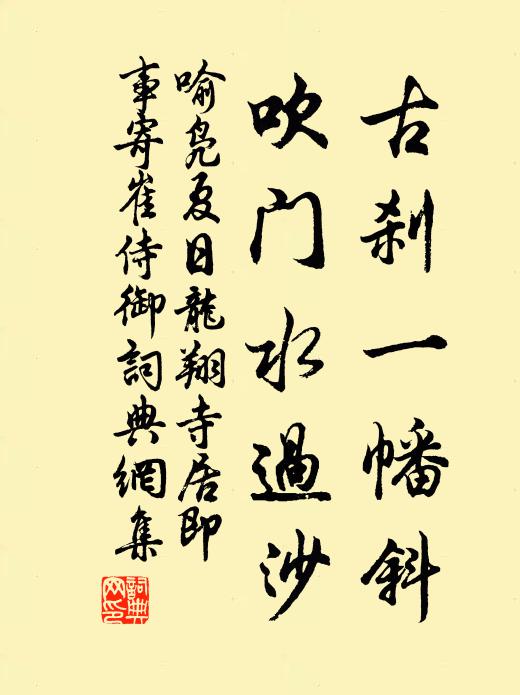 古刹一幡斜
吹門水過沙
喻凫夏日龍翔寺居即
事寄崔侍御詞典網集
詞典
网印